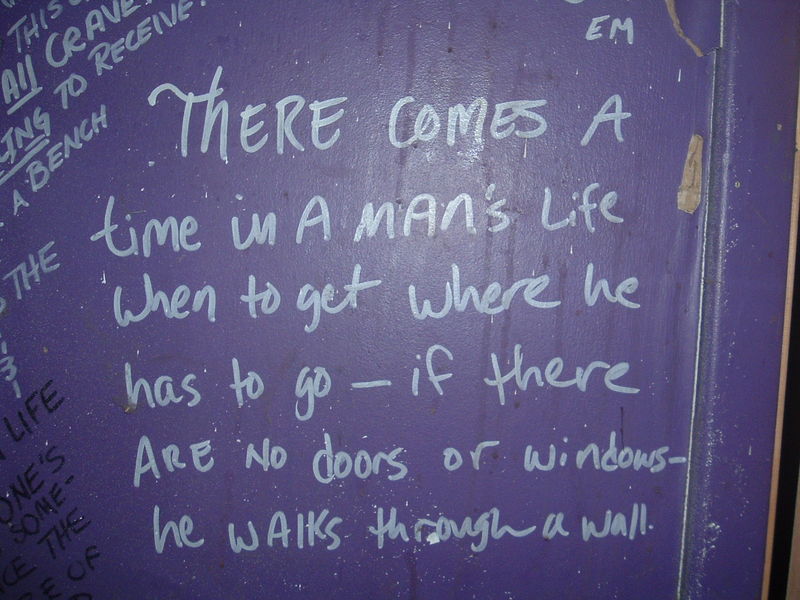 EM
THIS
All CRAVE
TO RECEIVE.
A BENCH
THE
3
1
LIFE
ONE'S
SOME-
THE
OF
THERE COMES A
time in A MAN's Life
When to get where he
has to go — if there
ARE No doors or windows-
he WALKS through a wall.